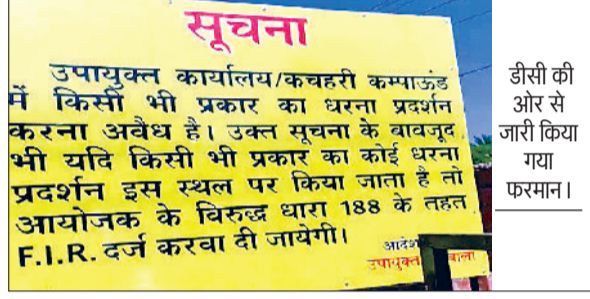 सूचना
उपायुक्त कार्यालय/कचहरी कम्पाऊंड
में किसी भी प्रकार का धरना प्रदर्शन
करना अवैध है। उक्त सूचना के बावजूद
भी यदि किसी भी प्रकार का कोई धरना
प्रदर्शन इस स्थल पर किया जाता है तो
आयोजक के विरुद्ध धारा 188 के तहत
F.I.R. दर्ज करवा दी जायेगी।
आदेश
उपायुक्त
डीसी की
ओर से
जारी किया
गया
फरमान।